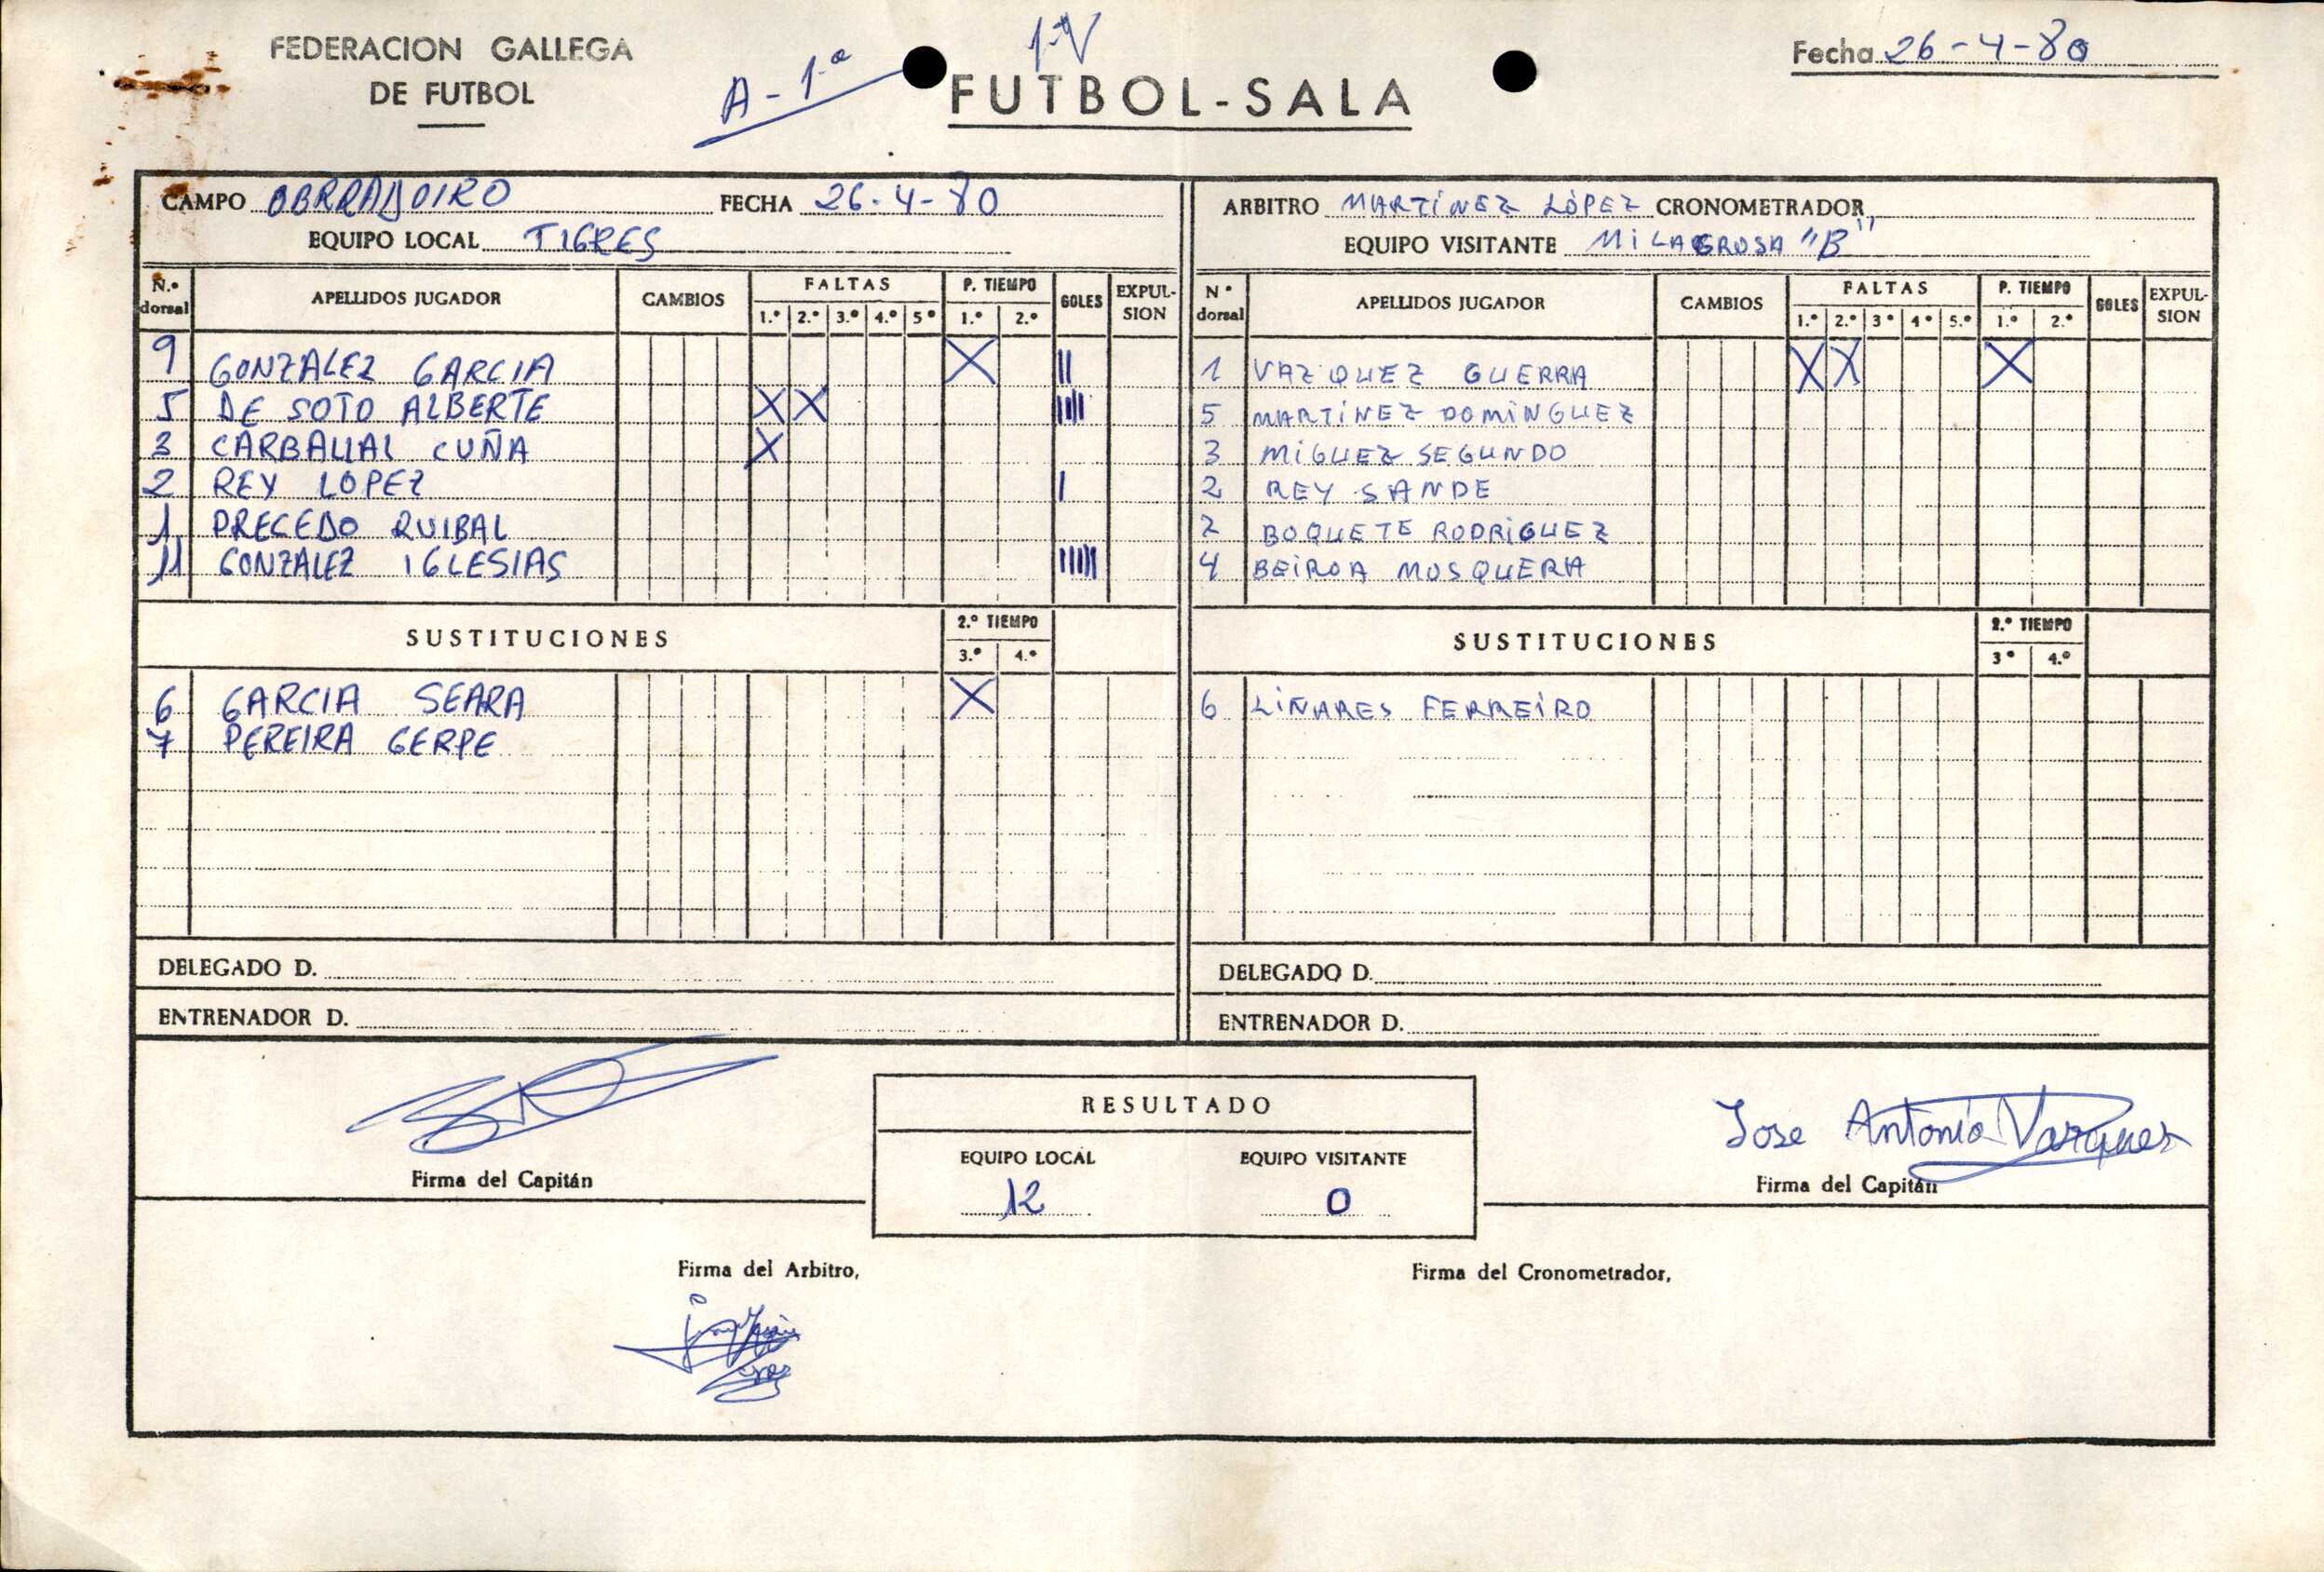 FEDERACION GALLEGA
DE FUTBOL
A - 1.ª
1-V
FUTBOL-SALA
Fecha 26-4-80
CAMPO OBRRADOIRO FECHA 26-4-80
EQUIPO LOCAL TIGRES
N.º dorsal APELLIDOS JUGADOR CAMBIOS FALTAS P. TIEMPO GOLES EXPUL-SION
1.º 2.º 3.º 4.º 5º 1.º 2.º
9 GONZALEZ GARCIA X II
5 DE SOTO ALBERTE X X IIII
3 CARBALLAL CUÑA X
2 REY LOPEZ I
1 PRECEDO RUIBAL
11 GONZALEZ IGLESIAS IIIII
SUSTITUCIONES 2.º TIEMPO
3.º 4.º
6 GARCIA SEARA X
7 PEREIRA GERPE
DELEGADO D.
ENTRENADOR D.
ARBITRO MARTÍNEZ LÓPEZ CRONOMETRADOR
EQUIPO VISITANTE MILAGROSA "B"
Nº dorsal APELLIDOS JUGADOR CAMBIOS FALTAS P. TIEMPO GOLES EXPUL-SION
1.º 2.º 3º 4º 5.º 1.º 2.º
1 VAZQUEZ GUERRA X X X
5 MARTÍNEZ DOMÍNGUEZ
3 MIGUEZ SEGUNDO
2 REY SANDE
7 BOQUETE RODRIGUEZ
4 BEIROA MOSQUERA
SUSTITUCIONES 2.º TIEMPO
3º 4.º
6 LIÑARES FERREIRO
DELEGADO D.
ENTRENADOR D.
Firma del Capitán
RESULTADO
EQUIPO LOCAL EQUIPO VISITANTE
12 0
Jose Antonio Vazquez
Firma del Capitán
Firma del Arbitro,
Firma del Cronometrador,